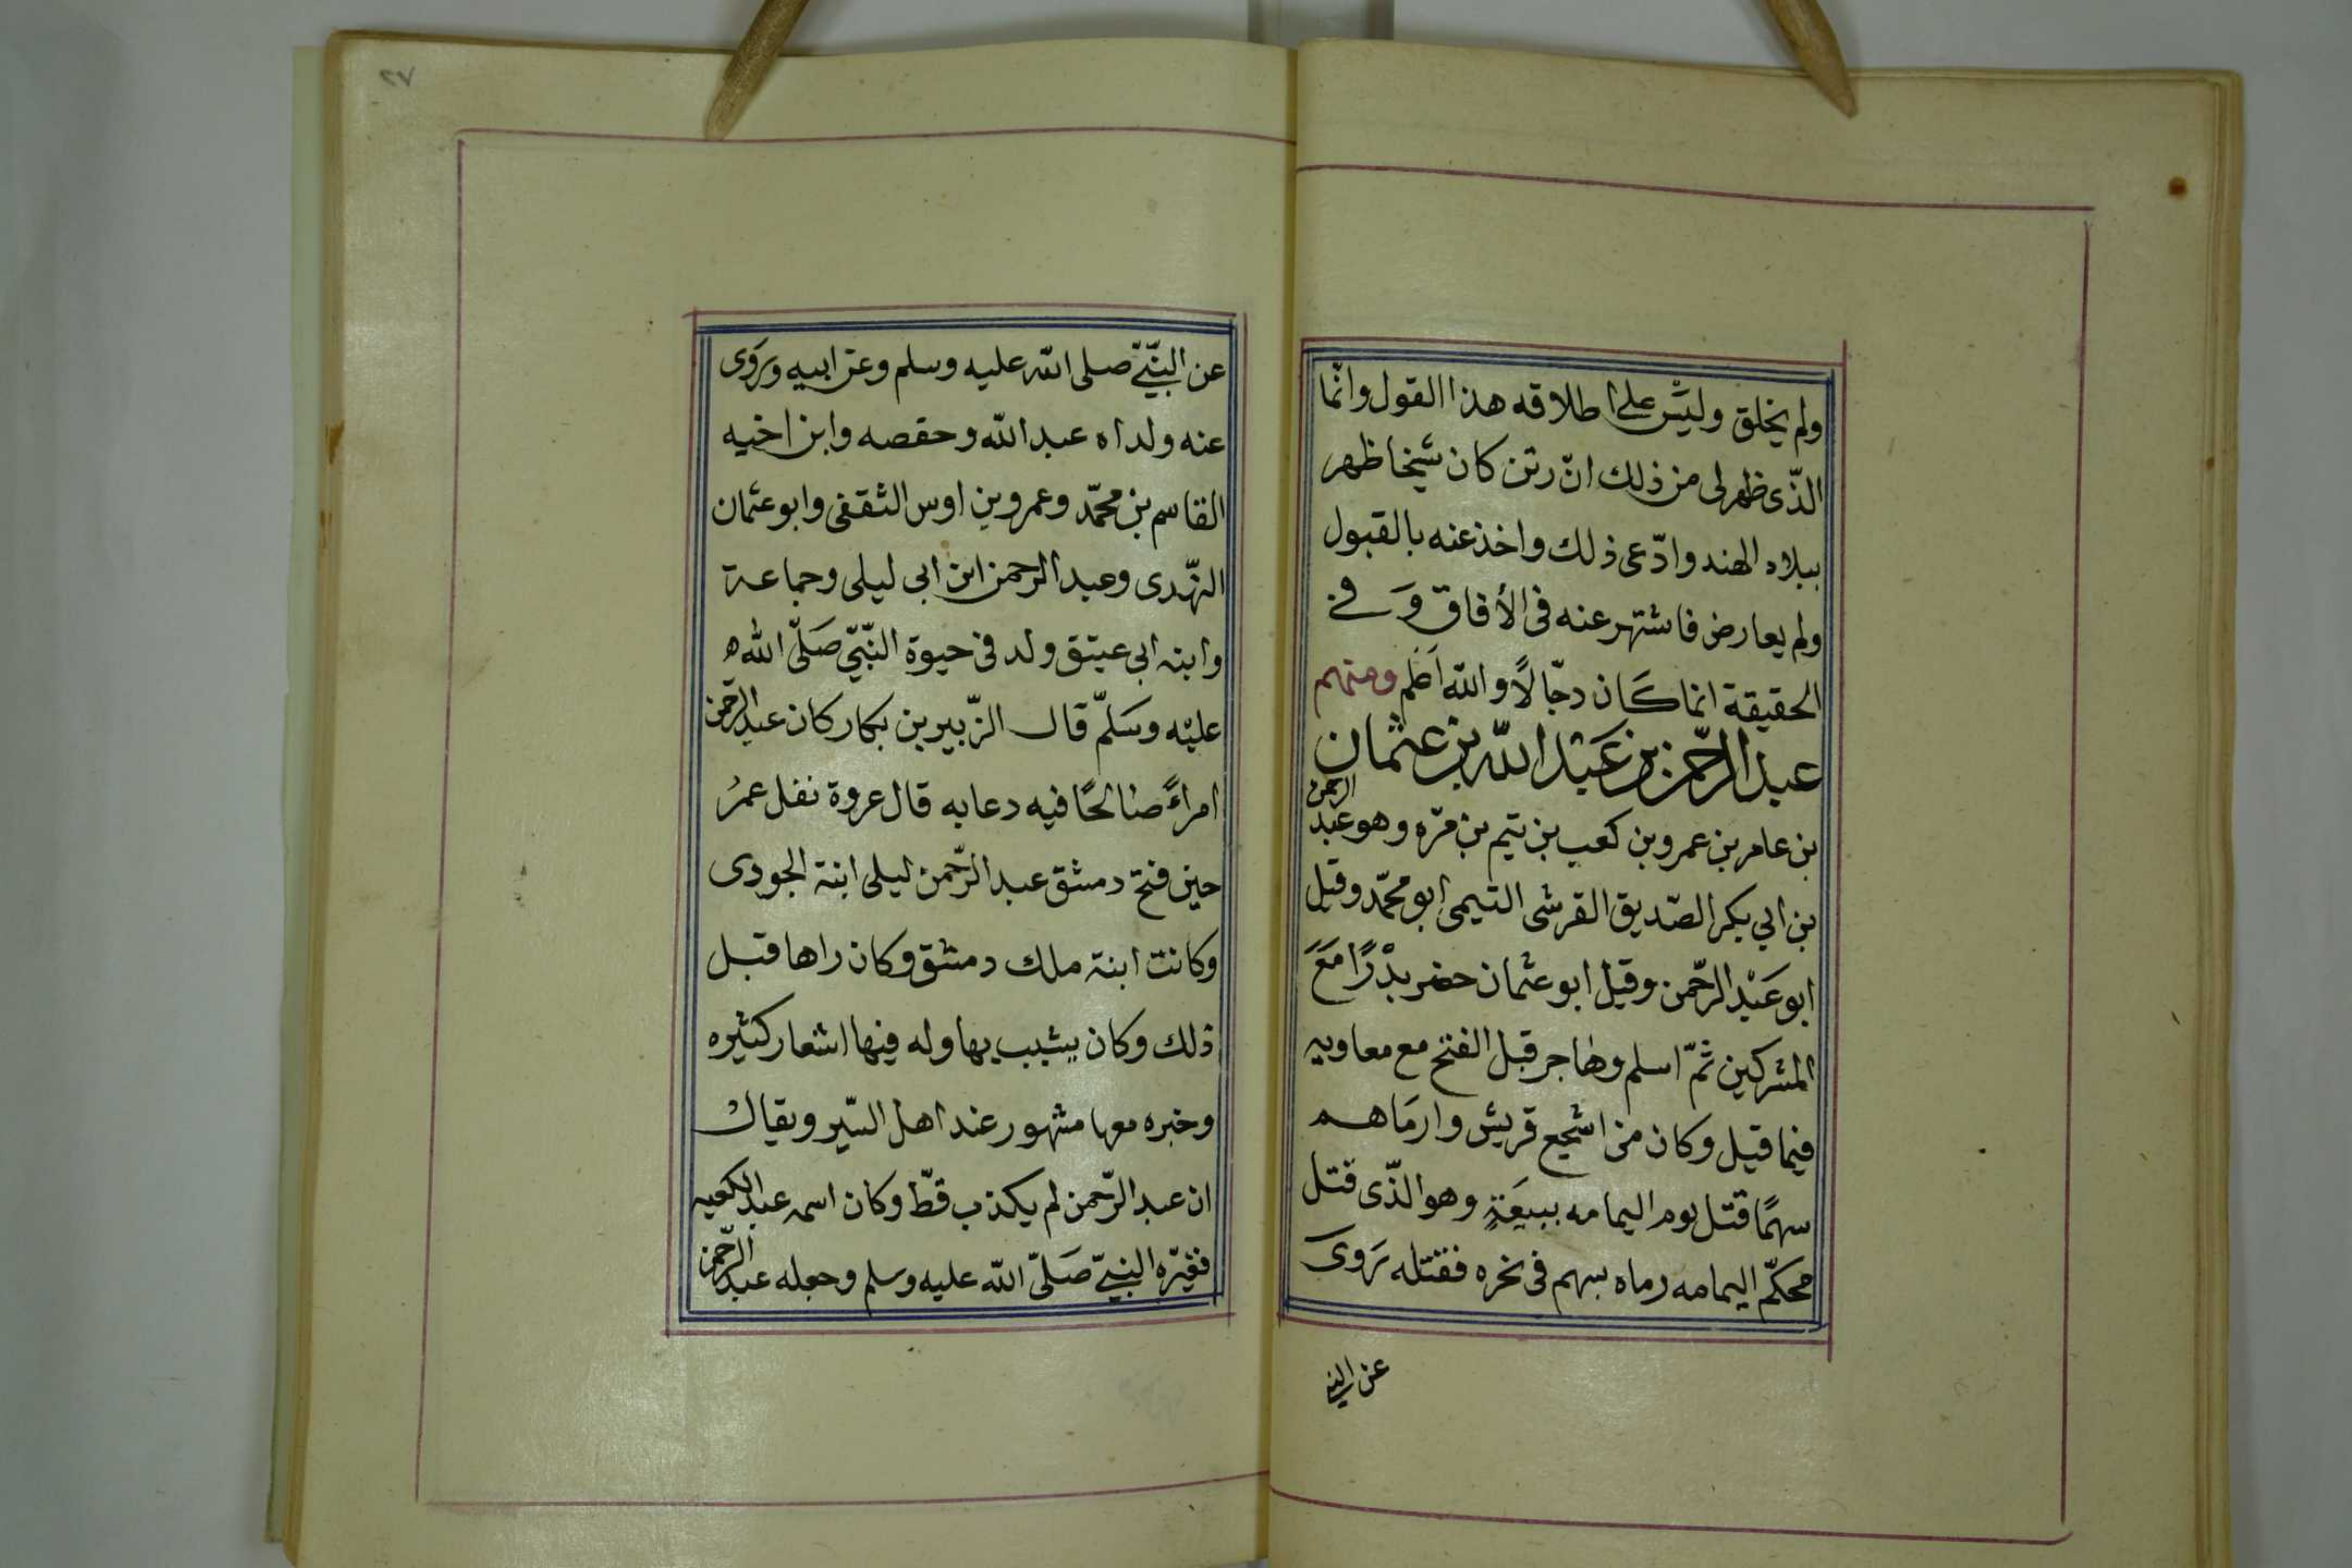 ولم يخلق وليس على اطلاقه هذا القول وانّما
الذّى ظهر لى من ذلك انّ رتن كان شيخا ظهر
ببلاد الهند وادّعى ذلك واخذ عنه بالقبول
ولم يعارض فاشتهر عنه فى الأفاق وَ فى
الحقيقة انما كَان دجّالاً والله اَعلم ومنهم
عبد الرّحمن بن عَبْد الله بن عثمان
بن عامر بن عمرو بن كعب بن تيم بن مرّه وهو عبد الرحمن
بن ابي بكر الصّديق القرشى التيمى ابو محمّد وقيل
ابو عَبْد الرّحمن وقيل ابو عثمان حضر بدْرًا مَعَ
المشركين ثمّ اسلم وهاجر قبل الفتح مع معاويه
فيما قيل وكان من اشجع قريش وارمَاهم
سهمًا قتل يوم اليمامه ببيعَةٍ وهو الذّى قتل
محكّم اليمامه رماه بسهم فى نحره فقتله رَوى
عن النبى
٢٧
عن النّبىّ صلى الله عليه وسلم وعن ابيه ورَوَى
عنه ولداه عبد الله وحقصه وابن اخيه
القاسم بن محمّد وعمرو بن اوس الثقفى وابو عثمان
النّهدى وعبد الرحمن ابن ابى ليلى وجماعة
وابنه ابى عيتق ولد فى حيوة النّبىّ صَلّى الله
عليْه وسَلّم قال الزّبير بن بكار كان عبد الرّحمن
امراءً صالحًا فيه دعابه قال عروة نفل عمرُ
حين فتح دمشق عبد الرّحمن ليلى ابنة الجودى
وكانت ابنة ملك دمشق وكان راها قبل
ذلك وكان يشبب بها وله فيها اشعار كثيره
وخبره معها مشهور عند اهل السّير ويقال
ان عبد الرّحمن لم يكذب قطّ وكان اسمه عبد الكعبه
فغيّره النبىّ صَلّى الله عليه وسلم وجعله عبد الرّحمن